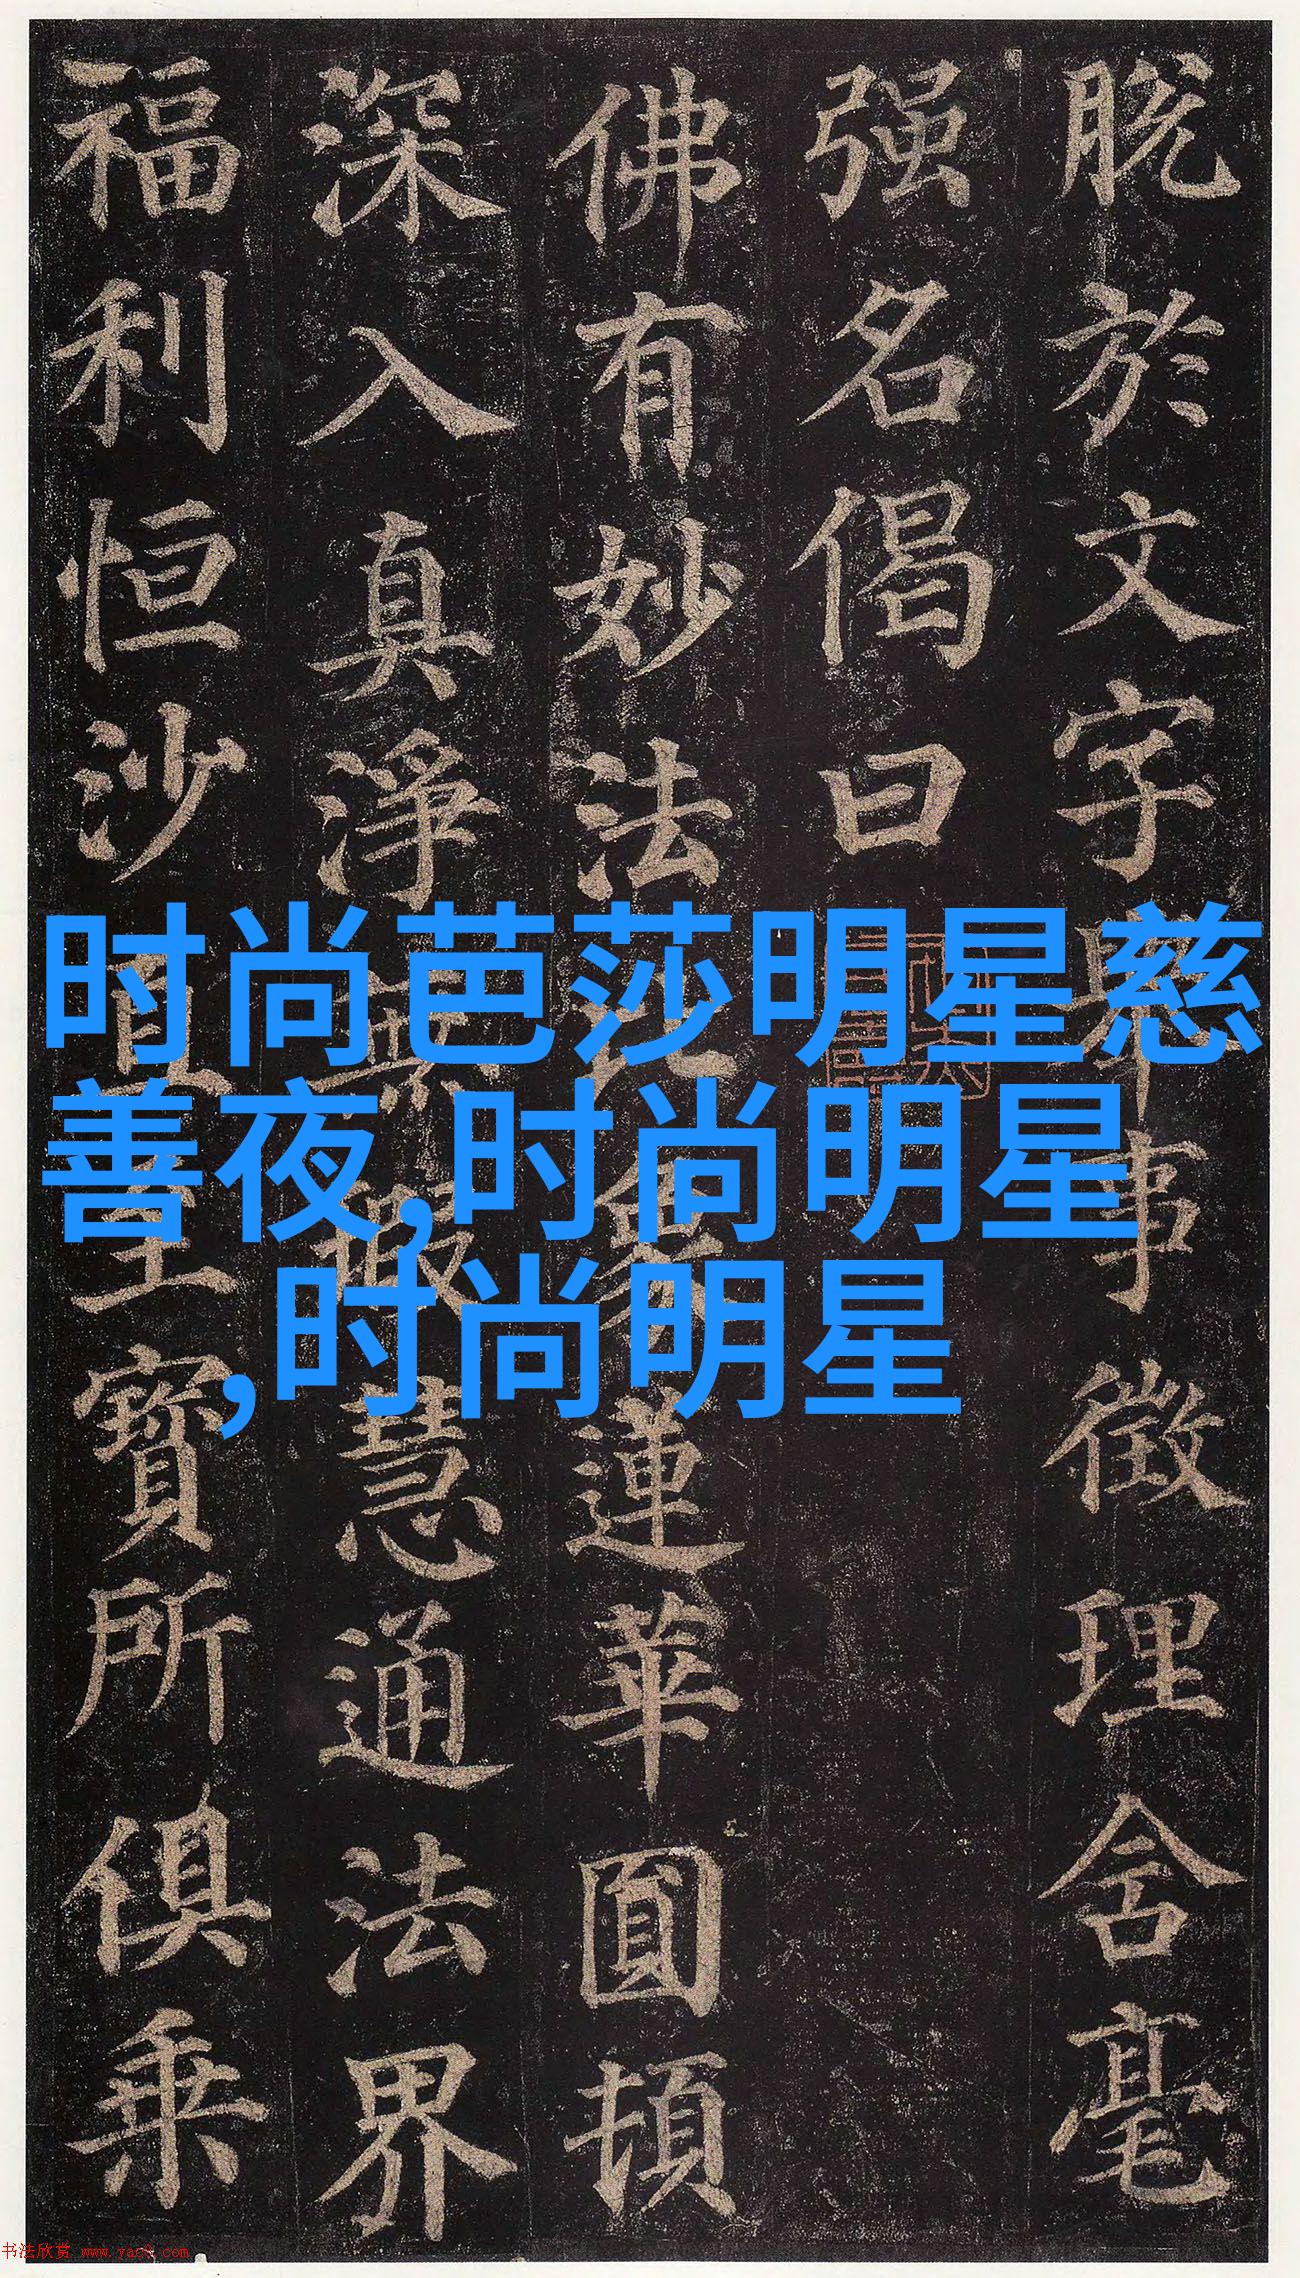 脫於文字舉事徵理含毫
强名偈曰
佛有妙法比象蓮華圓頓
深入真淨無瑕慧通法界
福利恒沙直至寶所俱乘
时尚芭莎明星慈
善夜,时尚明星
,时尚明星
书法欣赏 www.yac8.com